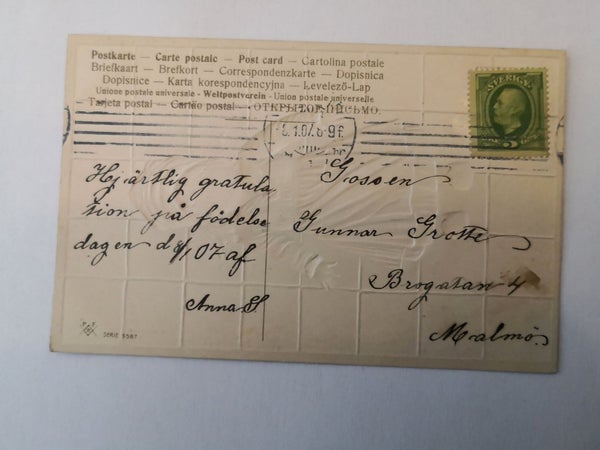 Postkarte — Carte postale — Post card — Cartolina postale
Briefkaart — Brefkort — Correspondenzkarte — Dopisnica
Dopisnice — Karta korespondencyjna — Levelező-Lap
Unione postale universale - Weltpostverein - Union postale universelle
Tarjeta postal — Cartão postal — ОТКРЫТОЕ ПИСЬМО.
SVERIGE
5.1.07. 8-9 F
Hjärtlig gratula
tion på födelse
dagen d 6/1 07 af
Anna S
Gossen
Gunnar Grotte
Brogatan 4
Malmö.
SERIE 5087